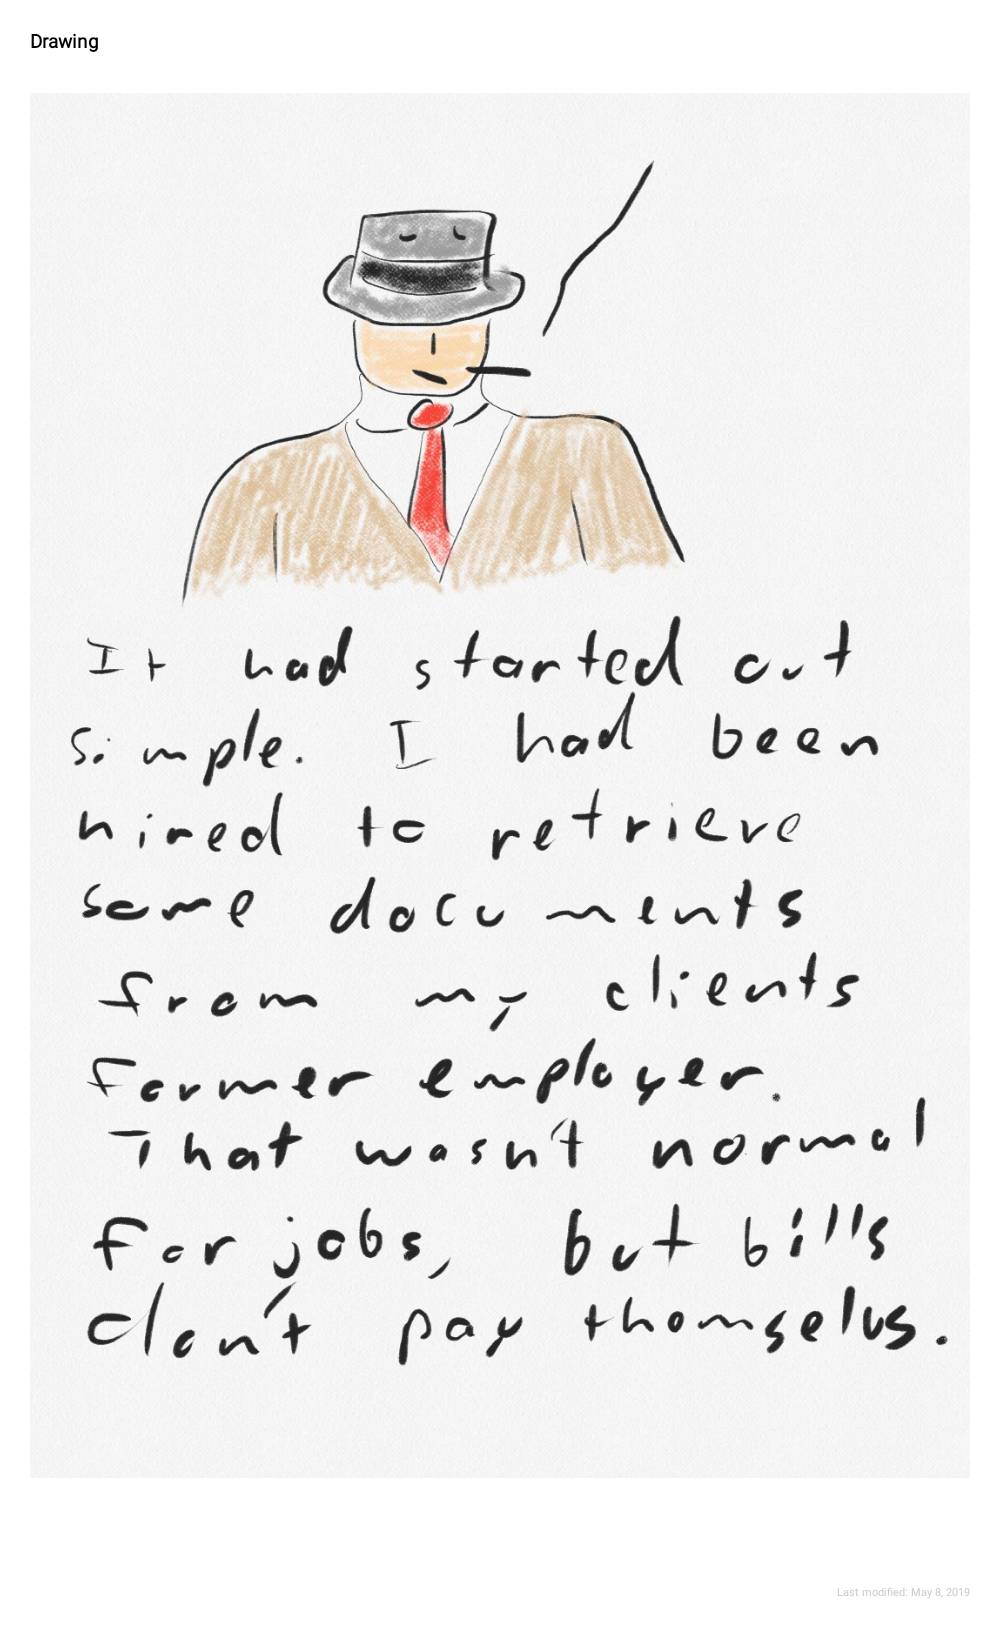 Drawing
It had started out
simple. I had been
hired to retrieve
some documents
from my clients
former employer.
That wasn't normal
for jobs, but bills
don't pay themselvs.
Last modified: May 8, 2019